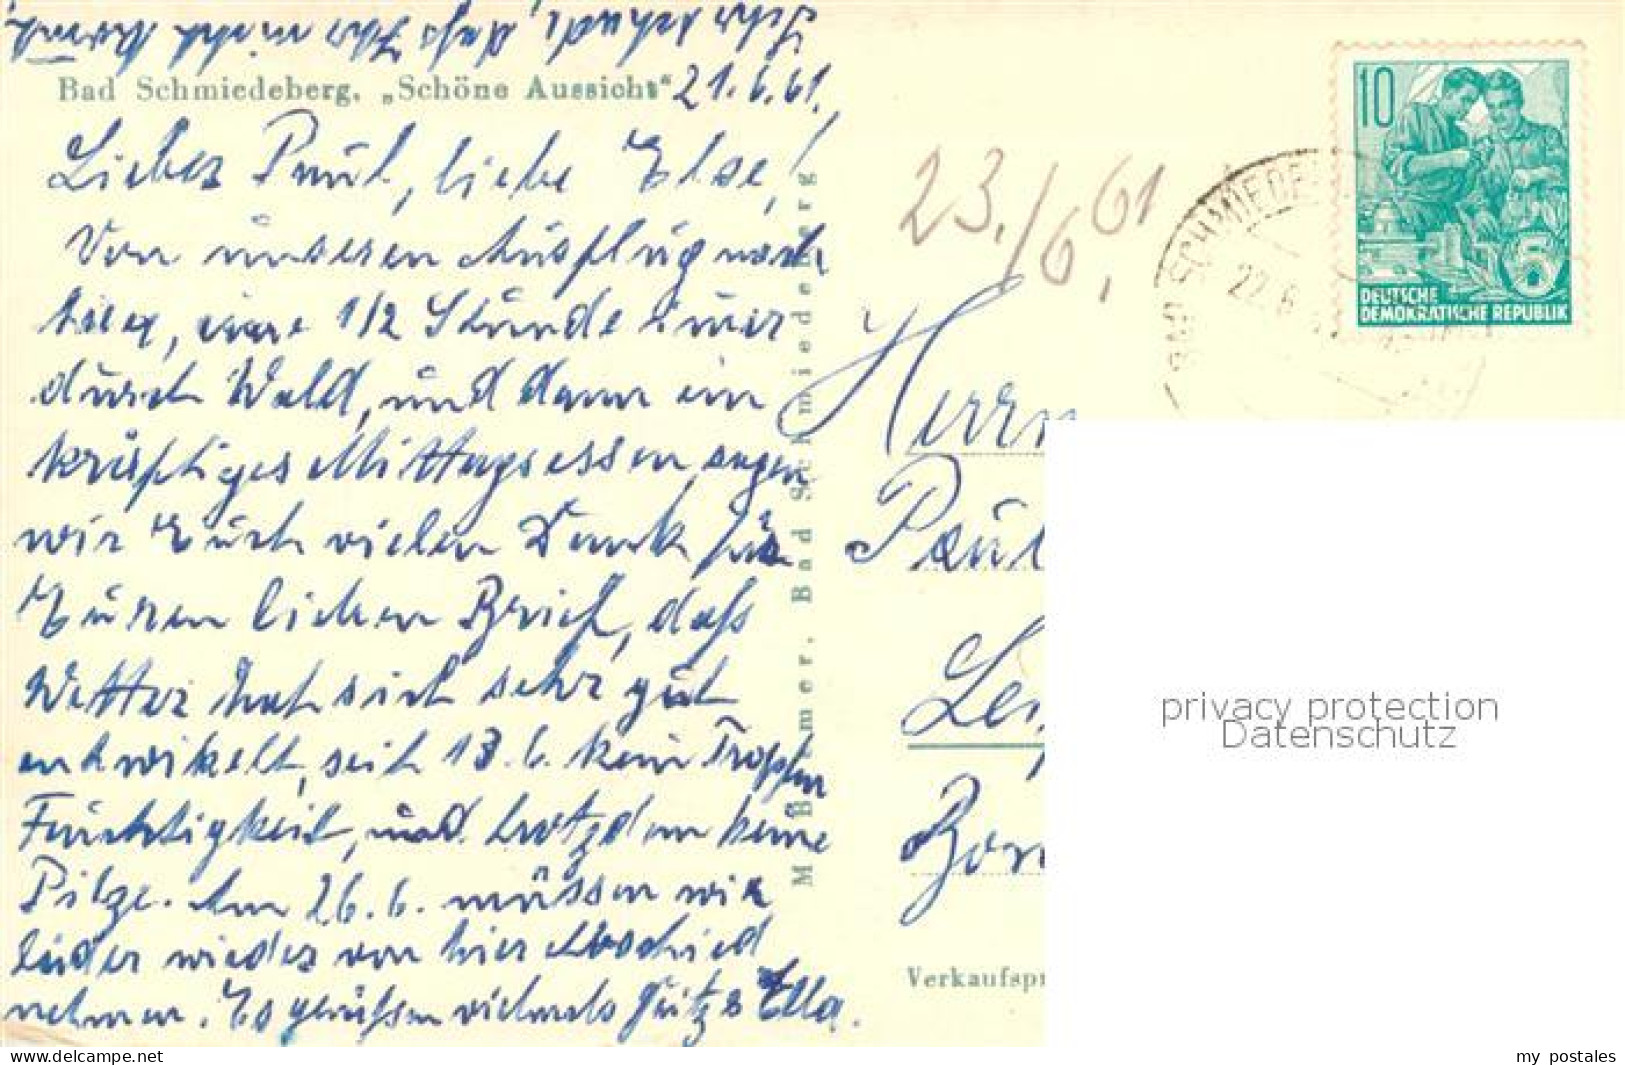 Sehr schade, dass Ihr nicht kommt,
Bad Schmiedeberg. „Schöne Aussicht“ 21.6.61.
Lieber Paul, liebe Else,!
Von unseren Ausflug nach
hier, eine 1/2 Stunde immer
durch Wald, und dann ein
kräftiges Mittagessen, sagen
wir Euch vielen Dank für
Euren lieben Brief, daß
Wetter hat sich sehr gut
entwickelt, seit 13.6. kein Tropfen
Feuchtigkeit, und trotzdem keine
Pilze. Am 26.6. müssen wir
leider wieder von hier Abschied
nehmen. Es grüßen vielmals Fritz & Ella.
Bad Schmiedeberg
23./6.61
SCHMIEDE
22.6
10
5
DEUTSCHE
DEMOKRATISCHE REPUBLIK
Herrn
Paul
Lei
Bor
Verkaufspr
privacy protection
Datenschutz
www.delcampe.net
my_postales